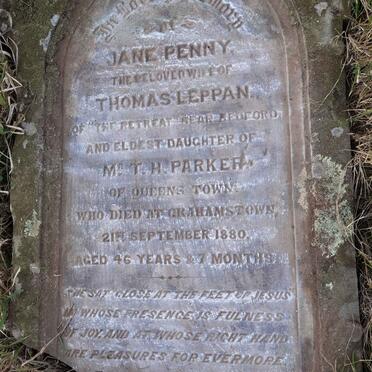 In Loving Memory
of
JANE PENNY,
THE BELOVED WIFE OF
THOMAS LEPPAN,
OF "THE RETREAT" NEAR BEDFORD,
AND ELDEST DAUGHTER OF
MR T. H. PARKER,
OF QUEENS TOWN,
WHO DIED AT GRAHAMSTOWN,
21ST SEPTEMBER 1880.
AGED 46 YEARS & 7 MONTHS.
"SHE SAT" CLOSE AT THE FEET OF JESUS"
IN WHOSE PRESENCE IS FULNESS
OF JOY, AND AT WHOSE RIGHT HAND
ARE PLEASURES FOR EVERMORE.